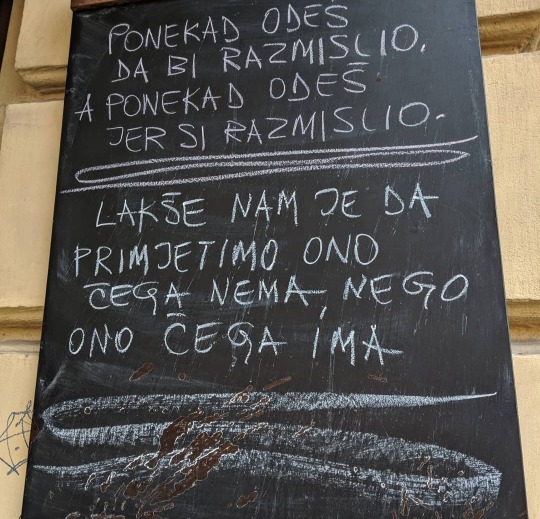 PONEKAD ODEŠ
DA BI RAZMISLIO.
A PONEKAD ODEŠ
JER SI RAZMISLIO.
LAKŠE NAM JE DA
PRIMJETIMO ONO
ČEGA NEMA, NEGO
ONO ČEGA IMA